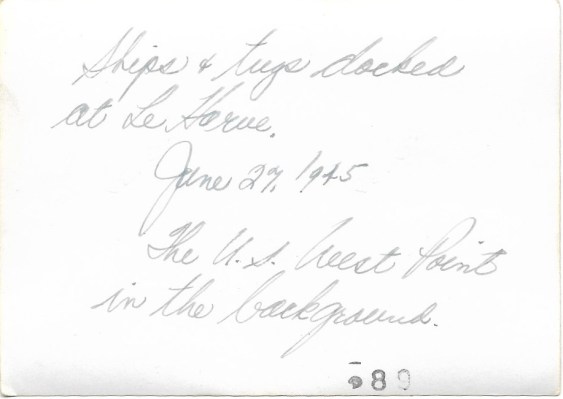 Ships & tugs docked
at Le Harve.
June 27, 1945
The U.S. West Point
in the background.